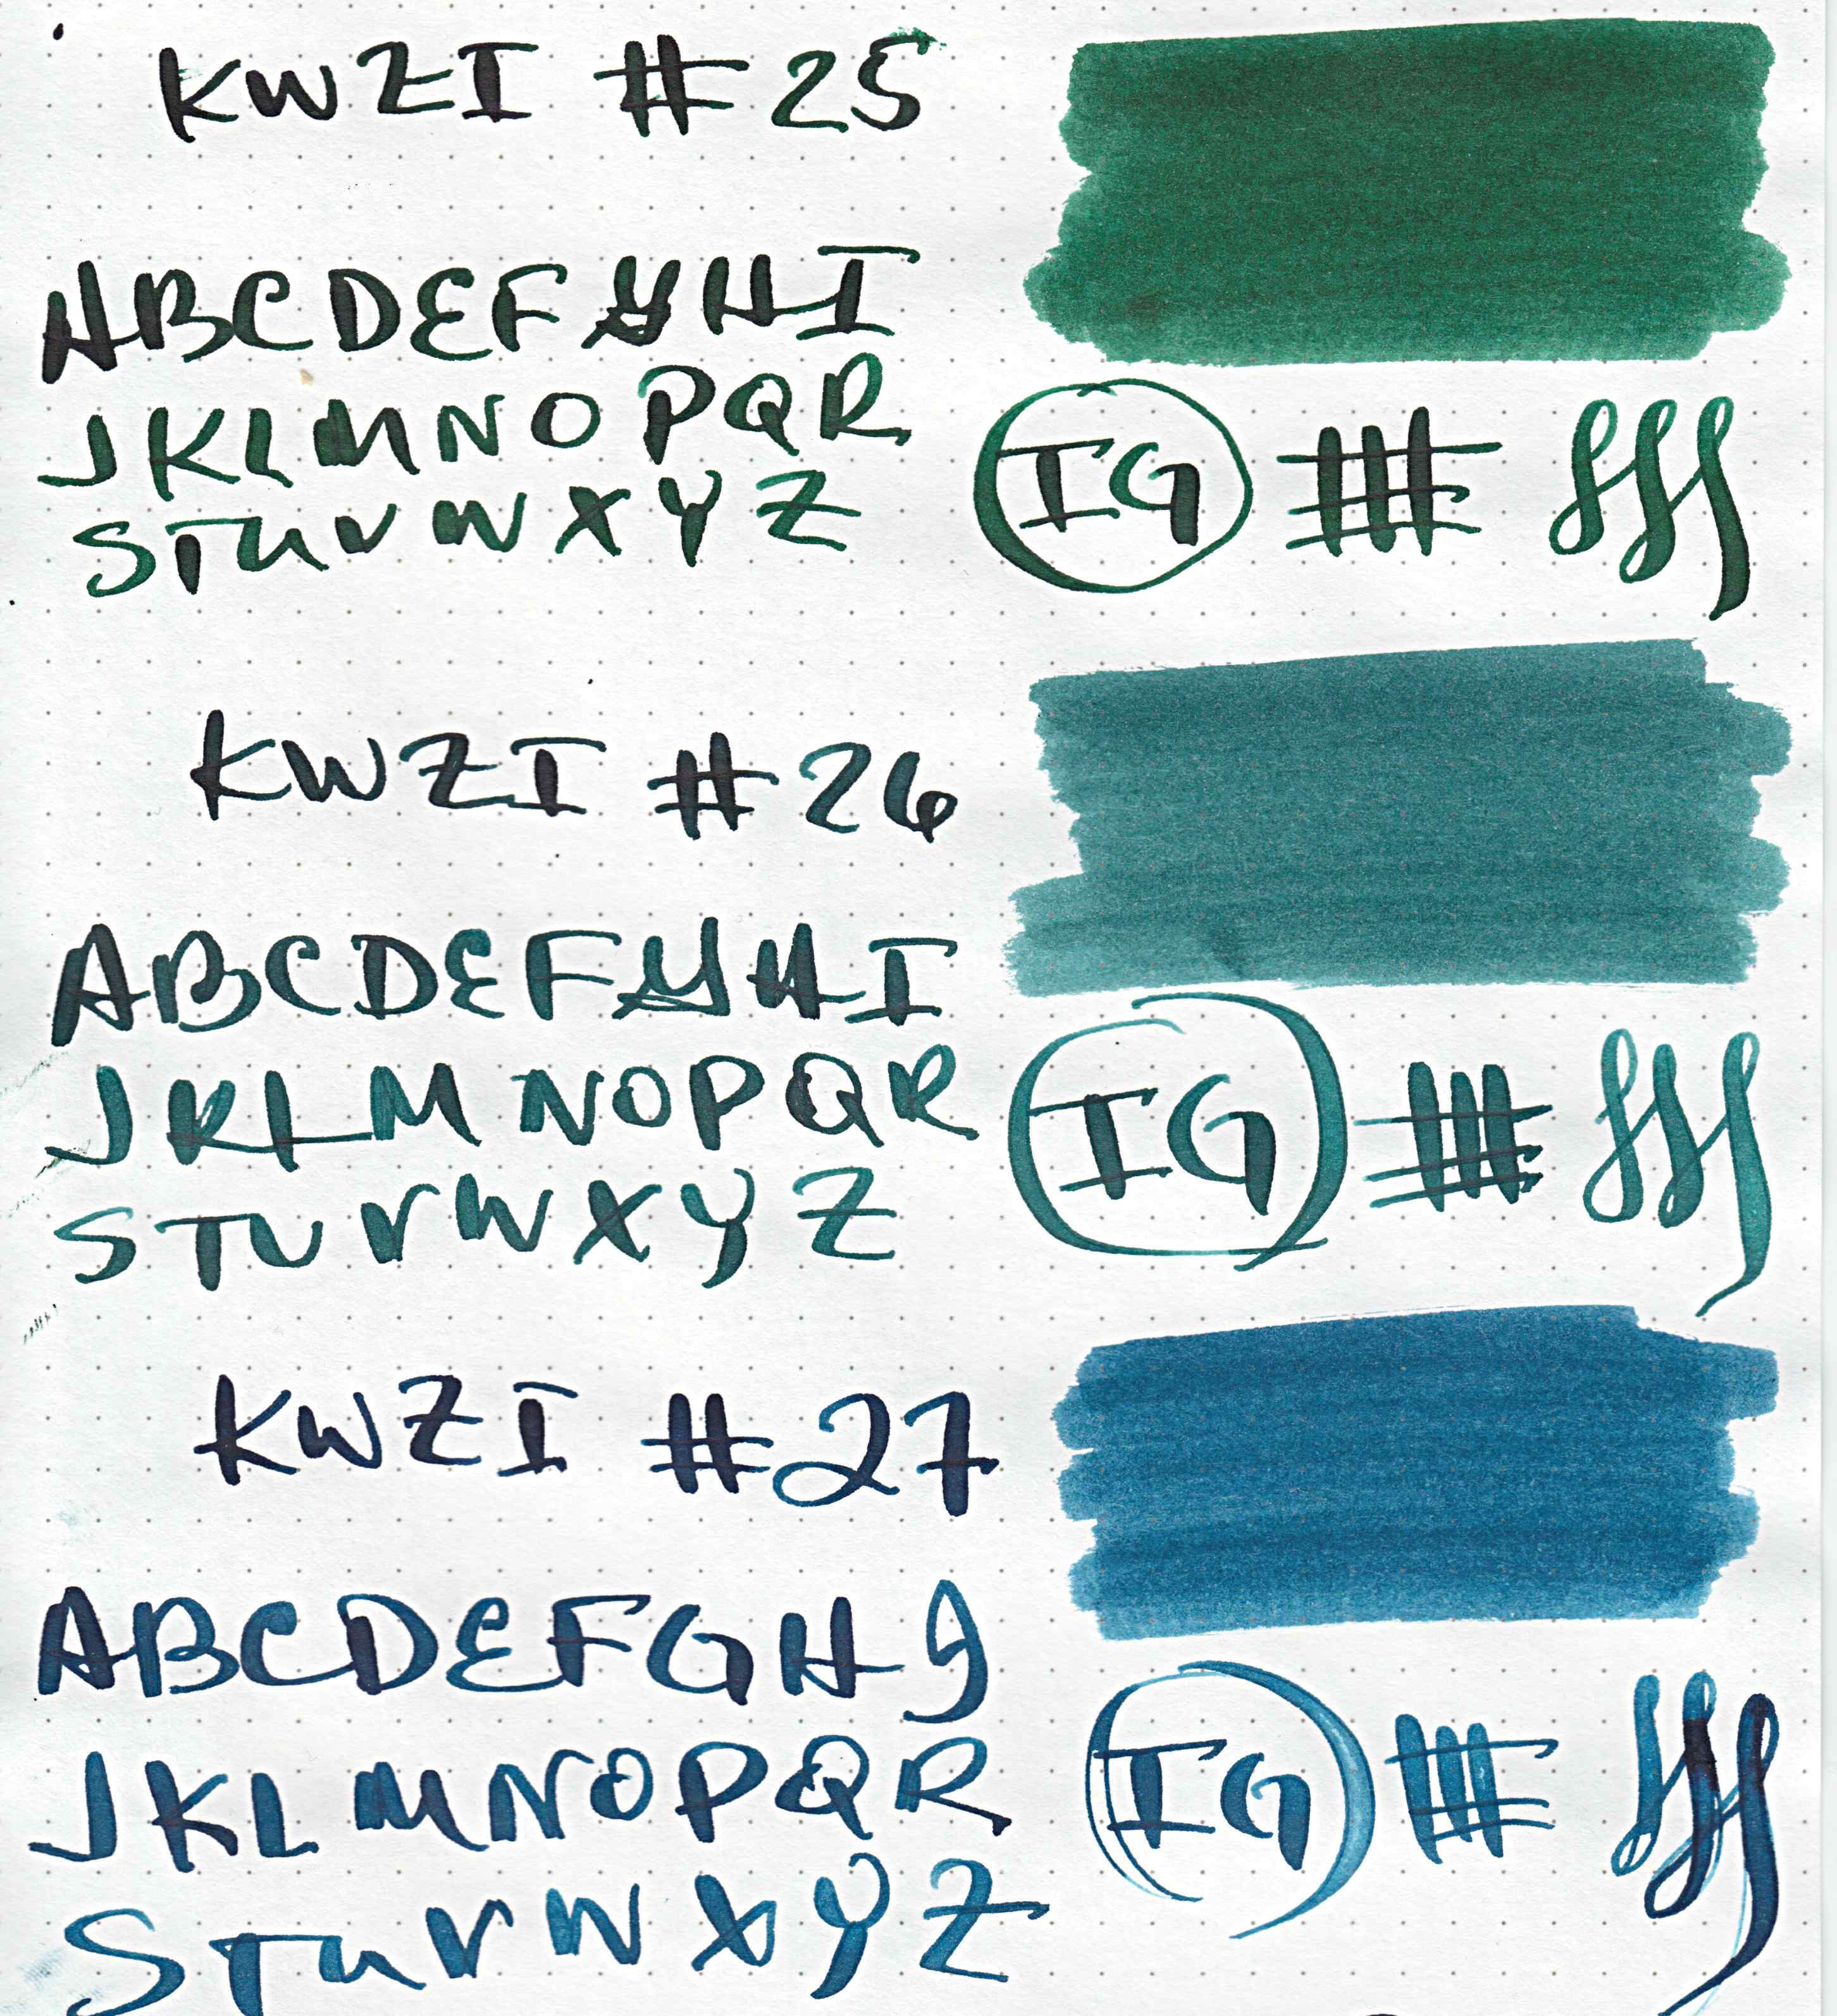 KWZI #25
ABCDEFGHI
JKLMNOPQR
STUVWXYZ
IG
KWZI #26
ABCDEFGHI
JKLMNOPQR
STUVWXYZ
IG
KWZI #27
ABCDEFGHI
JKLMNOPQR
STUVWXYZ
IG